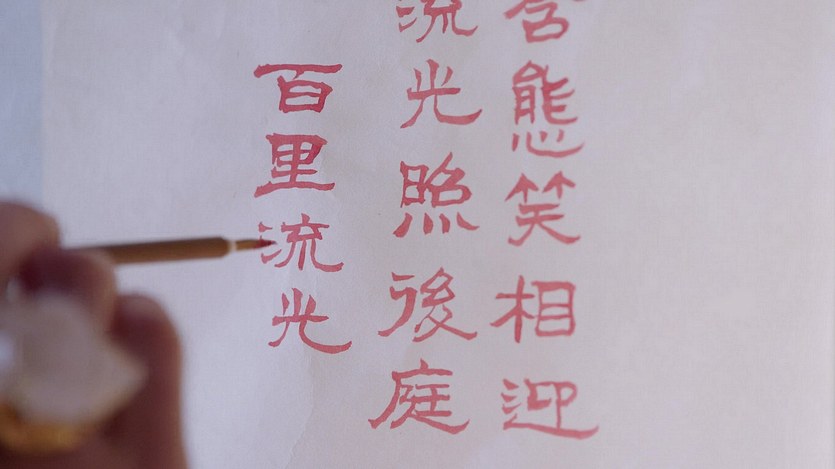 含態笑相迎
流光照後庭
百里流光